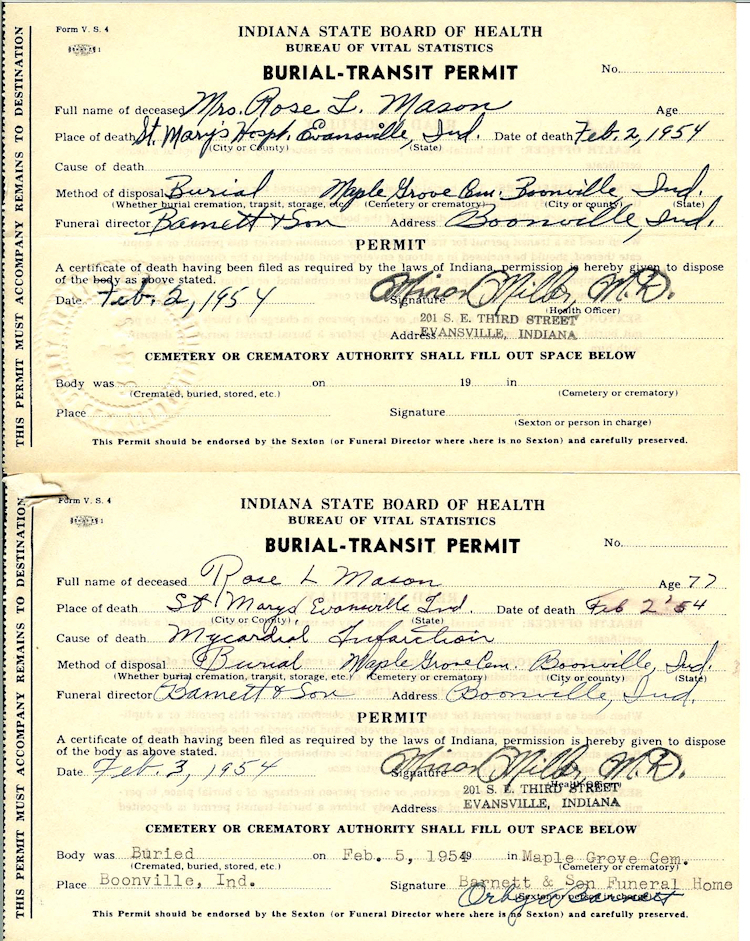 Form V. S. 4
INDIANA STATE BOARD OF HEALTH
BUREAU OF VITAL STATISTICS
BURIAL-TRANSIT PERMIT
No.
THIS PERMIT MUST ACCOMPANY REMAINS TO DESTINATION
Full name of deceased Mrs. Rose L. Mason Age
Place of death St. Mary's Hosph. Evansville, Ind. Date of death Feb. 2, 1954
(City or County) (State)
Cause of death
Method of disposal Burial Maple Grove Cem. Boonville, Ind.
(Whether burial cremation, transit, storage, etc.) (Cemetery or crematory) (City or county) (State)
Funeral director Barnett & Son Address Boonville, Ind.
PERMIT
A certificate of death having been filed as required by the laws of Indiana, permission is hereby given to dispose
of the body as above stated.
Date Feb. 2, 1954 Signature Minor Miller, M.D.
(Health Officer)
201 S. E. THIRD STREET
Address EVANSVILLE, INDIANA
CEMETERY OR CREMATORY AUTHORITY SHALL FILL OUT SPACE BELOW
Body was on 19 in
(Cremated, buried, stored, etc.) (Cemetery or crematory)
Place Signature
(Sexton or person in charge)
This Permit should be endorsed by the Sexton (or Funeral Director where there is no Sexton) and carefully preserved.
Form V. S. 4
INDIANA STATE BOARD OF HEALTH
BUREAU OF VITAL STATISTICS
BURIAL-TRANSIT PERMIT
No.
THIS PERMIT MUST ACCOMPANY REMAINS TO DESTINATION
Full name of deceased Rose L Mason Age 77
Place of death St Marys Evansville Ind. Date of death Feb 2 '54
(City or County) (State)
Cause of death Mycardial Infarction
Method of disposal Burial Maple Grove Cem. Boonville, Ind.
(Whether burial cremation, transit, storage, etc.) (Cemetery or crematory) (City or county) (State)
Funeral director Barnett & Son Address Boonville, Ind.
PERMIT
A certificate of death having been filed as required by the laws of Indiana, permission is hereby given to dispose
of the body as above stated.
Date Feb. 3, 1954 Signature Minor Miller, M.D.
(Health Officer)
201 S. E. THIRD STREET
Address EVANSVILLE, INDIANA
CEMETERY OR CREMATORY AUTHORITY SHALL FILL OUT SPACE BELOW
Body was Buried on Feb. 5, 1954 19 in Maple Grove Cem.
(Cremated, buried, stored, etc.) (Cemetery or crematory)
Place Boonville, Ind. Signature Barnett & Son Funeral Home
(Sexton or person in charge)
Barnett
This Permit should be endorsed by the Sexton (or Funeral Director where there is no Sexton) and carefully preserved.